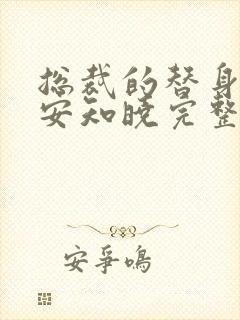 总裁的替身
安知晓完整
安争鸣